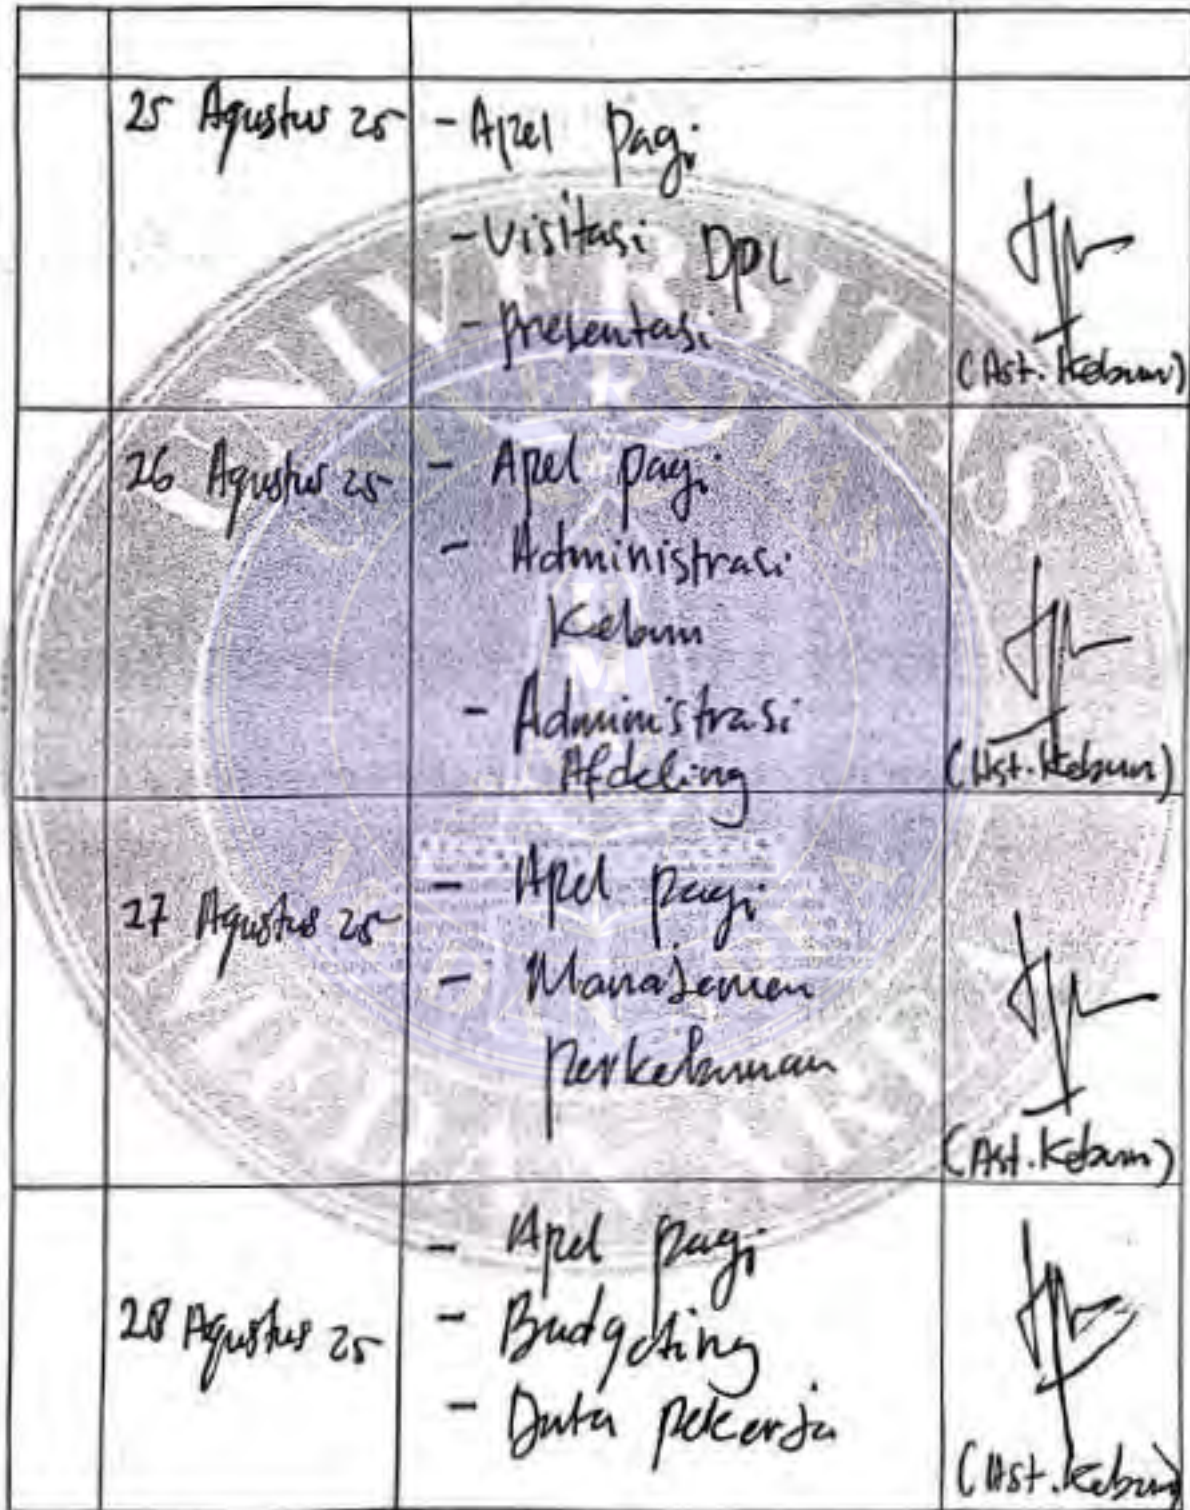 25 Agustus 25
- Apel pagi
- Visitasi DPL
- presentasi
(Ast. Kebun)
26 Agustus 25
- Apel pagi
- Administrasi
Kebun
- Administrasi
Afdeling
(Ast. Kebun)
27 Agustus 25
- Apel pagi
- Manajemen
perkebunan
(Ast. Kebun)
28 Agustus 25
- Apel pagi
- Budgeting
- Data pekerja
(Ast. Kebun)
UNIVERSITAS
MEDAN AREA
UNIVERSITAS
MEDAN AREA